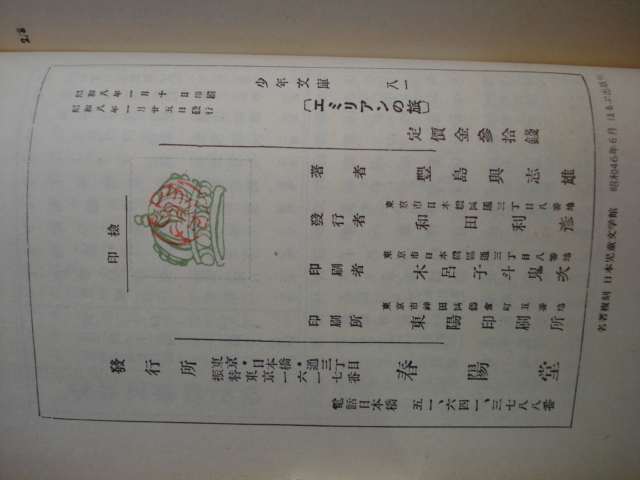 昭和八年一月十日印刷
昭和八年一月廿五日發行
少年文庫 八一
（エミリアンの旅）
定價金參拾錢
著者 豐島與志雄
東京市日本橋區通三丁目八番地
發行者 和田利彥
東京市日本橋區通三丁目八番地
印刷者 木呂子斗鬼次
東京市神田區鍛倉町五番地
印刷所 東陽印刷所
檢印
發行所
東京・日本橋・通三丁目
振替東京一六一七番
春陽堂
電話日本橋 五一、六四一、三七八八番
名著複刻 日本児童文学館 昭和46年6月 ほるぷ出版刊